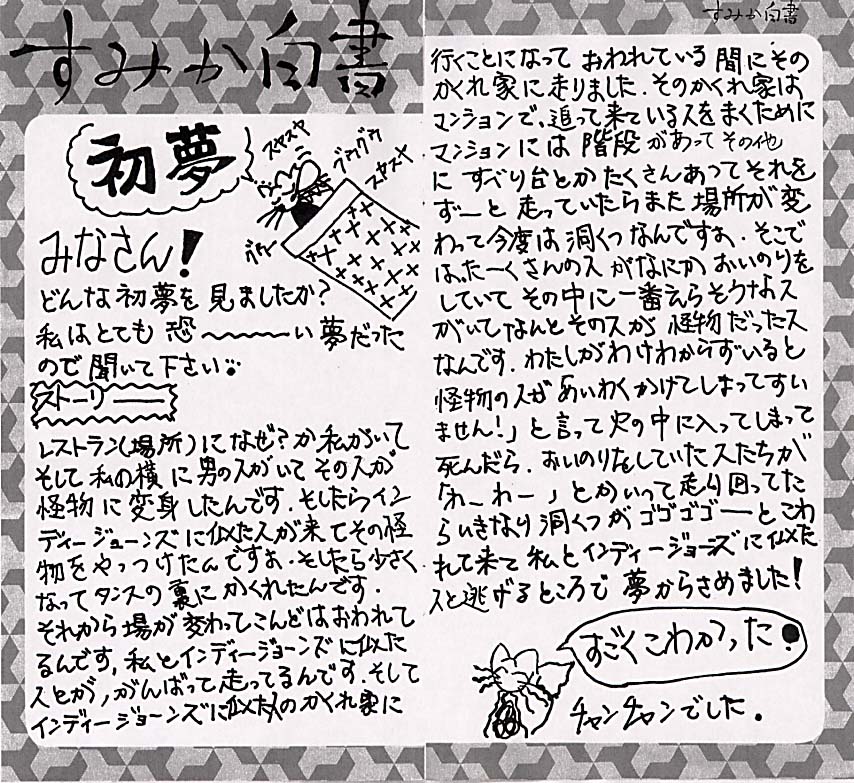 すみか白書
初夢
スヤスヤ
グゥグゥ
スヤスヤ
みなさん!
どんな初夢を見ましたか?
私はとても恐〜〜〜い夢だった
ので聞いて下さい
ストーリー
レストラン(場所)になぜ?か私がいて
そして私の横に男の人がいてその人が
怪物に変身したんです.そしたらイン
ディージョーンズに似た人が来てその怪
物をやっつけたんですよ.そしたら少さく
なってタンスの裏にかくれたんです.
それから場が変わってこんどはおわれて
るんです,私とインディージョーンズに似た
人とが,がんばって走ってるんです.そして
インディージョーンズに似た人のかくれ家に
すみか白書
行くことになっておわれている間にその
かくれ家に走りました.そのかくれ家は
マンションで,追って来ている人をまくために
マンションには階段があってその他
にすべり台とかたくさんあってそれを
ずーと走っていたらまた場所が変
わって今度は洞くつなんですよ.そこで
は,たーくさんの人がなにかおいのりを
していてその中に一番えらそうな人
がいてなんとその人が怪物だった人
なんです.わたしがわけわからずいると
怪物の人が「めいわくかけてしまってすい
ません!」と言って火の中に入ってしまって
死んだら.おいのりをしていた人たちが
「わーわー」とかいって走り回ってた
らいきなり洞くつがゴゴゴゴーーとこわ
れて来て私とインディージョーンズに似た
人と逃げるところで夢からさめました!
すごくこわかった!
チャンチャンでした.